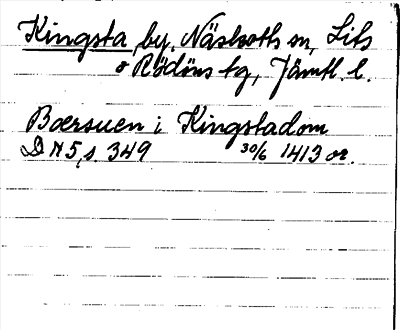 Kingsta, by, Näskotts sn, Lits
o Rödöns tg, Jämtl. l.
Boersuen i Kingstadom
DN 5, s 349 30/6 1413 or.